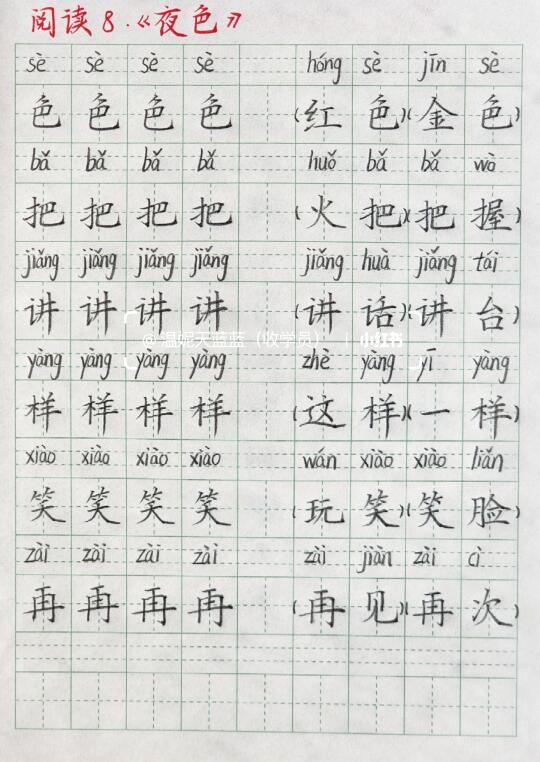 阅读8.《夜色》
sè sè sè sè hóng sè jīn sè
色 色 色 色 (红 色)(金 色)
bǎ bǎ bǎ bǎ huǒ bǎ bǎ wò
把 把 把 把 (火 把)(把 握)
jiǎng jiǎng jiǎng jiǎng jiǎng huà jiǎng tái
讲 讲 讲 讲 (讲 话)(讲 台)
@温妮天蓝蓝(收学员) 小红书
yàng yàng yàng yàng zhè yàng yī yàng
样 样 样 样 (这 样)(一 样)
xiào xiào xiào xiào wán xiào xiào liǎn
笑 笑 笑 笑 (玩 笑)(笑 脸)
zài zài zài zài zài jiàn zài cì
再 再 再 再 (再 见)(再 次)